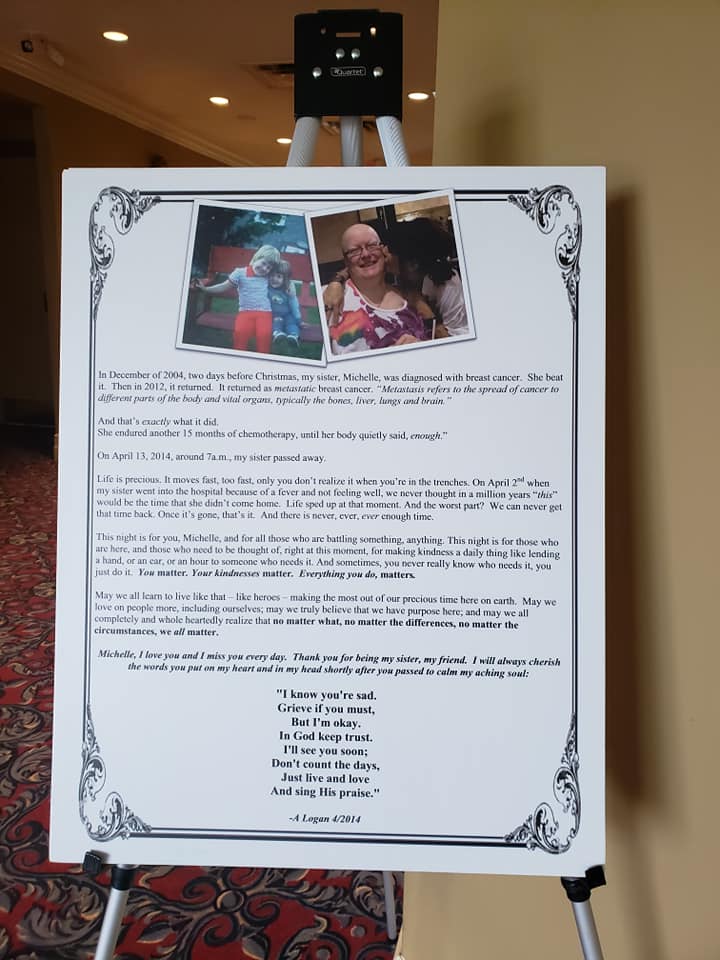 Quartet
In December of 2004, two days before Christmas, my sister, Michelle, was diagnosed with breast cancer. She beat
it. Then in 2012, it returned. It returned as metastatic breast cancer. "Metastasis refers to the spread of cancer to
different parts of the body and vital organs, typically the bones, liver, lungs and brain."
And that's exactly what it did.
She endured another 15 months of chemotherapy, until her body quietly said, enough."
On April 13, 2014, around 7a.m., my sister passed away.
Life is precious. It moves fast, too fast, only you don't realize it when you're in the trenches. On April 2nd when
my sister went into the hospital because of a fever and not feeling well, we never thought in a million years "this"
would be the time that she didn't come home. Life sped up at that moment. And the worst part? We can never get
that time back. Once it's gone, that's it. And there is never, ever, ever enough time.
This night is for you, Michelle, and for all those who are battling something, anything. This night is for those who
are here, and those who need to be thought of, right at this moment, for making kindness a daily thing like lending
a hand, or an ear, or an hour to someone who needs it. And sometimes, you never really know who needs it, you
just do it. You matter. Your kindnesses matter. Everything you do, matters.
May we all learn to live like that – like heroes – making the most out of our precious time here on earth. May we
love on people more, including ourselves; may we truly believe that we have purpose here; and may we all
completely and whole heartedly realize that no matter what, no matter the differences, no matter the
circumstances, we all matter.
Michelle, I love you and I miss you every day. Thank you for being my sister, my friend. I will always cherish
the words you put on my heart and in my head shortly after you passed to calm my aching soul:
"I know you're sad.
Grieve if you must,
But I'm okay.
In God keep trust.
I'll see you soon;
Don't count the days,
Just live and love
And sing His praise."
-A Logan 4/2014